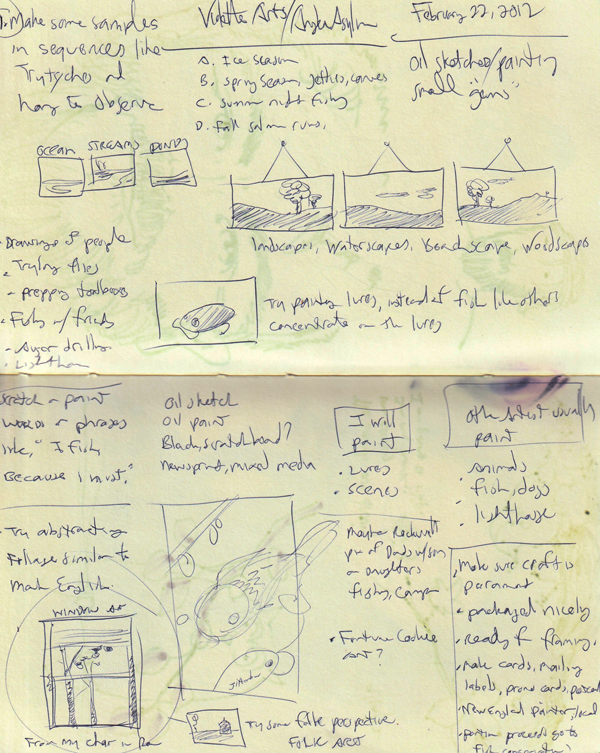 1. Make some samples
in sequences like
Triptychs
hang to observe
Violette Arts/Angler Asylum
A. Ice season
B. Spring season, Jetties, canoes
C. summer night fishing
D. Fall salmon runs,
February 22, 2012
oil sketches/painting
small "gems"
OCEAN STREAMS PONDS
landscapes, Waterscapes, Beachscape, Woodscapes
- Drawings of people
- Tying flies
- prepping
- Fishing w/ friends
- auger drilling
Try painting lures, instead of fish like others
concentrate on the lures
Scratch or paint
words or phrases
like, "I fish,
Because I must,"
- Try abstracting
Foliage similar to
Mark English.
WINDOW
From my chair in
oil sketch
oil paint
Black, scratchboard?
newsprint, mixed media
I will
paint
- Lures
- scenes
Maybe Rockwell
of Dads w/son
or daughters
fishing, camp
- Fortune Cookie
Art?
Try some folk perspective.
FOLK ART
Other artist usually
paint
- Animals
- fish, dogs
- lighthouse
- Make sure craft is
paramount
- packaged nicely
- Ready for framing.
- Make cards, mailing
labels, promo cards,
- New England painter, local
- portion proceeds go to
fish